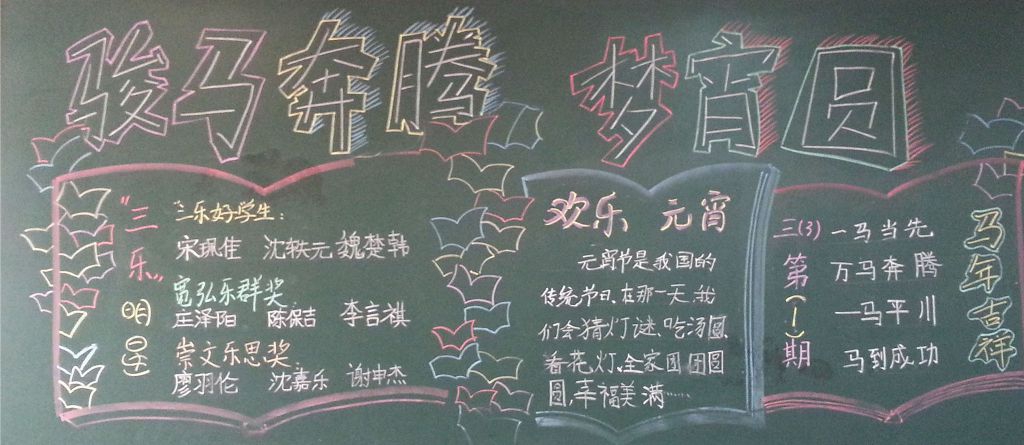 骏马奔腾 梦宵圆
"三乐"明星
三乐好学生:
宋珮佳 沈轶元 魏楚韩
宽弘乐群奖
庄泽阳 陈保吉 李言祺
崇文乐思奖
廖羽伦 沈嘉乐 谢申杰
欢乐 元宵
元宵节是我国的
传统节日、在那一天,我
们会猜灯谜、吃汤圆、
看花灯,全家团团圆
圆,幸福美满……
三(3)
第(一)期
一马当先
万马奔腾
一马平川
马到成功
马年吉祥